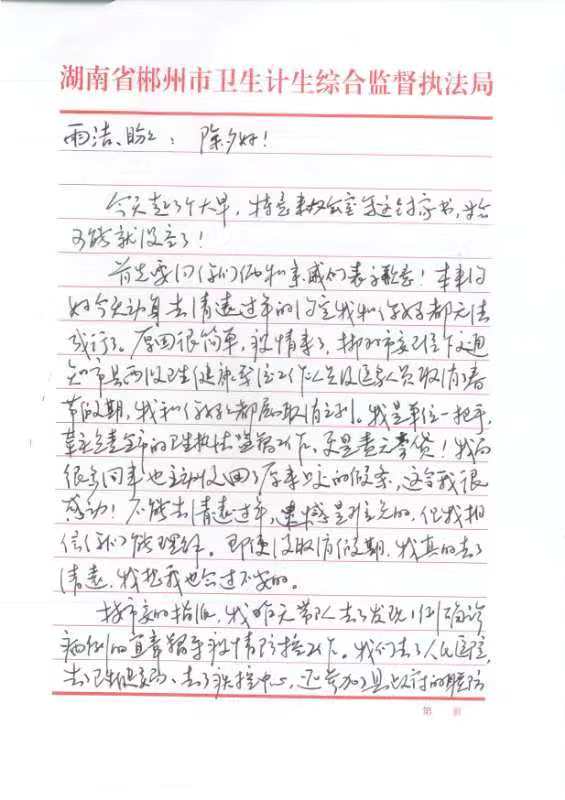 湖南省郴州市卫生计生综合监督执法局
雨洁、盼盼：除夕好！
今天起了个大早，特意来办公室写这封家书，
可能就没空了！
首先要向你们俩和亲戚们表示歉意！本来约
好今天动身去清远过年的约定我和你妈都无法
成行了。原因很简单，疫情来了，郴州市委已经下文通
知市县两级卫生健康单位工作人员及医务人员取消春
节假期，我和你妈都属取消之列。我是单位一把手，
负责全市的卫生执法监督工作，更是责无旁贷！我的
很多同事也主动收回了原来上交的假条，这令我很
感动！不能去清远过年，遗憾是肯定的，但我相
信你们能理解。即使没取消假期，我真的去了
清远，我想我也会过不安的。
按市委的指派，我昨天带队去了发现1例确诊
病例的宜章督导疫情防控工作。我们去了人民医院，
去了卫生健康局、去了疾控中心，还参加了县政府的
第 页